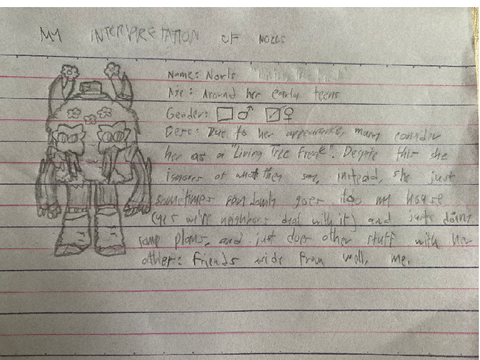 MY INTERPRETATION OF NORLS
Name: Norls
Age: Around her early teens
Gender: ♂ ♀
Desc: Due to her appearance, many consider
her as a "Living Tree Freak". Despite this she
ignores at what they say, instead, she just
sometimes randomly goes into my house
(yes we're neighbors deal with it) and just doing
some plans, and just does other stuff with her
other: friends wide from well, me.